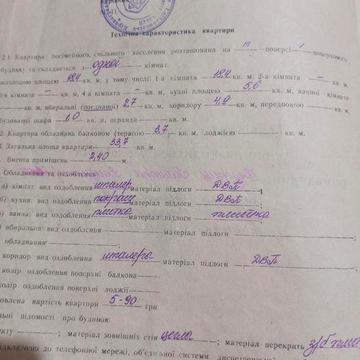 Технічна характеристика квартири
2.1. Квартира посімейного, спільного заселення розташована на III поверсі
будинку та складається з однієї кімнат
площею 18,4 кв. м, у тому числі 1-а кімната 18,4 кв. м, 2-а кімната —
3-я кімната — кв. м, 4-а кімната — кв. м, кухні площею 5,6 кв. м, ванної кімнати
кв. м, вбиральні (поєднаної) 2,7 кв. м, коридору 4,9 кв. м, передпокою
вбудованої шафи 1,0 кв. м, веранди кв. м.
Квартира обладнана балконом (терасою) 3,7 кв. м, лоджією кв. м.
Загальна площа квартири 33,7 кв. м.
Висота приміщень 2,40 м.
Обладнання та оздоблення
а) кімнат вид оздоблення шпалери матеріал підлоги ДВП
б) кухні вид оздоблення покраш матеріал підлоги ДВП
в) ванна вид оздоблення плитка матеріал підлоги плитка
вбиральні вид оздоблення матеріал підлоги
обладнання
коридор вид оздоблення шпалери матеріал підлоги ДВП
колір оздоблення поверхні балкона
колір оздоблення поверхні лоджії
вартість квартири 5-90 грн
відомості про будинок:
матеріал зовнішніх стін цегла; матеріал перекрить з/б плити
підключено до телефонної мережі, об'єднаної системи диспетчерської